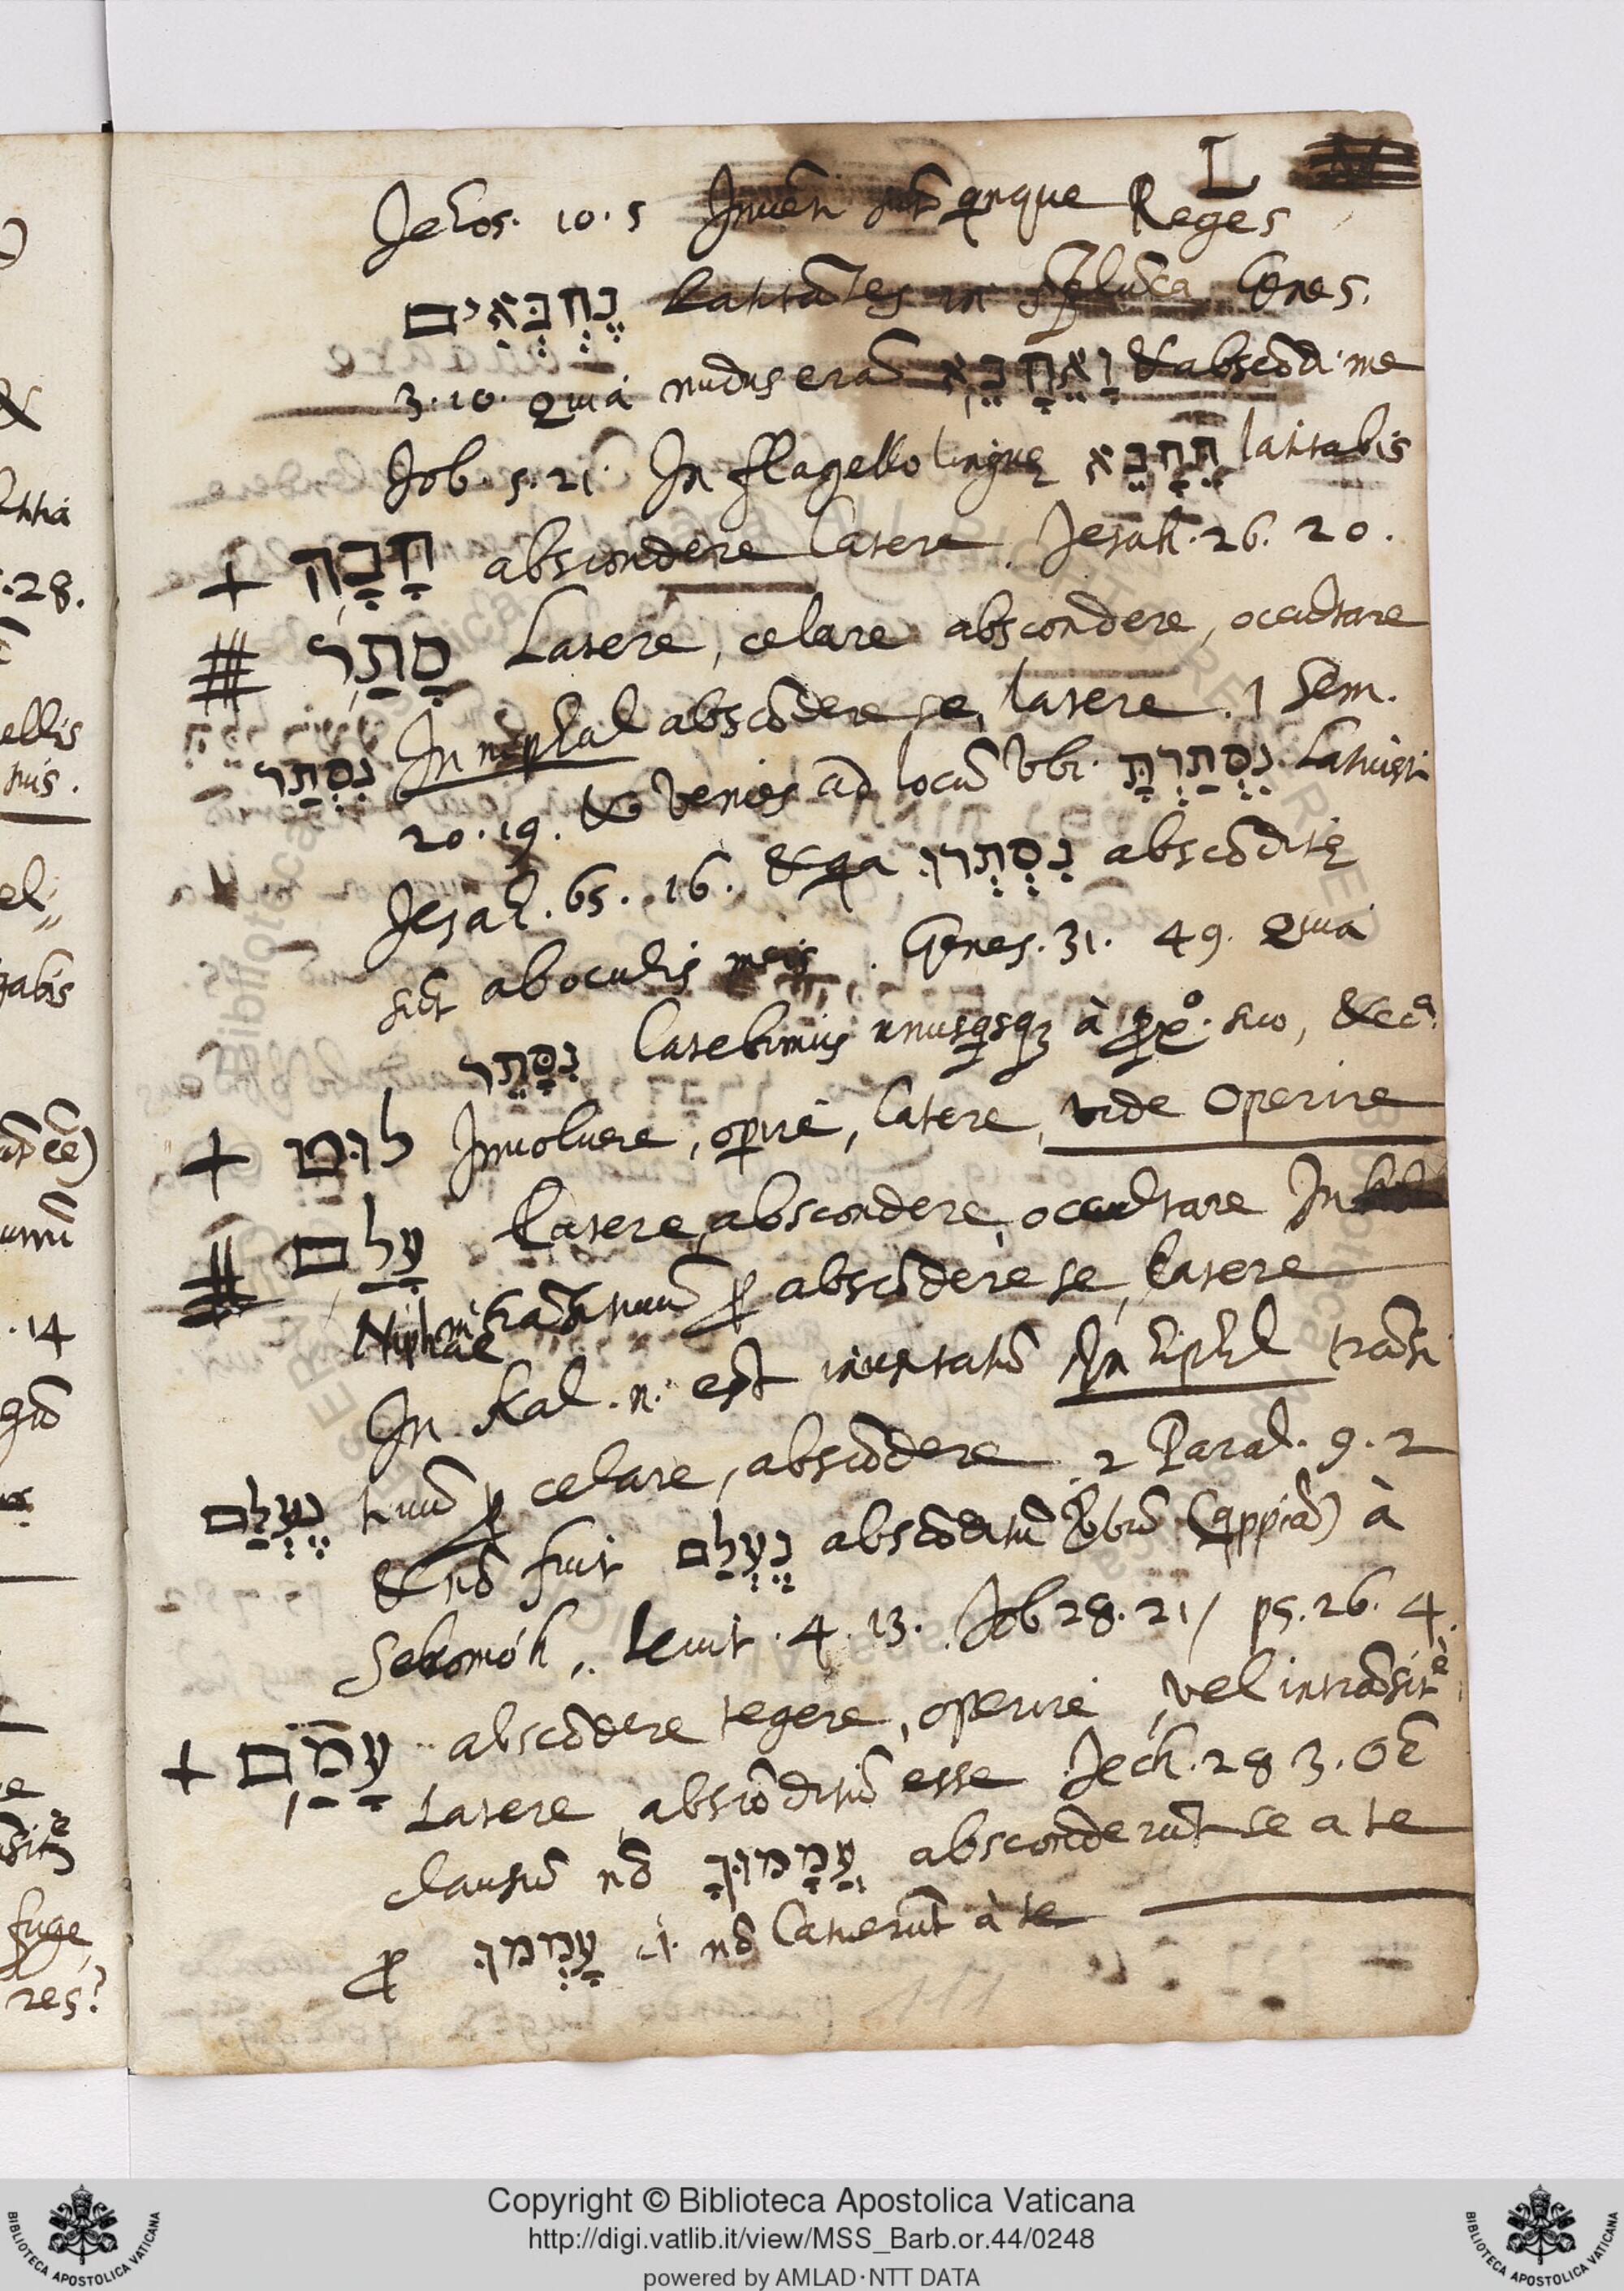 L
Jehos. 10. 5 Inuēti sūt qnque Reges
נֶחְבְּאִים latitātes in spelūca Genes.
3. 10. Quia nudus erā וָאֵחָבֵא & abscōdi me
Job. 5. 21. In flagello linguę תֵחָבֵא latitabis
+ חָבָה abscondere latere. Jesah. 26. 20.
סָתַר Latere, celare abscondere, occultare
In niphal abscōdere se, latere. 1 Sem.
נִסְתַר
20. 19. & venies ad locū vbi נִסְתַרְתָּ Latuisti
Jesah. 65. 16. & qa נִסְתְרוּ abscōditę
sūt ab oculis meis. Genes. 31. 49. Quia
נִסָּתֵר latebimus unusqsqȝ à pxº. suo, &cª.
+ לוּט Inuoluere, opire, latere, vide Operire
עָלַם Latere, abscondere, occultare In
Niphal intrāsitiuū ꝓ abscōdere se, latere
In Kal. n. est inusitatū In hiphil trāsi
tiuū ꝓ celare, abscōdere. 2 Paral. 9. 2
נֶעְלַם
& nō fuit נֶעְלַם abscōditū vbū (qppiā) à
Selomóh, Leuit. 4. 13. Job 28. 21, ps. 26. 4.
+ עָמַם abscōdere tegere, operire, vel intrāsitè
Latere, abscōditū esse Jech. 28 3. Oē
clausū nō עֲמָמוּךָ absconderūt se a te
ꝓ עָמְמוּ .i. nō latuerūt à te
Copyright © Biblioteca Apostolica Vaticana
http://digi.vatlib.it/view/MSS_Barb.or.44/0248
powered by AMLAD·NTT DATA
BIBLIOTECA APOSTOLICA VATICANA
BIBLIOTECA APOSTOLICA VATICANA